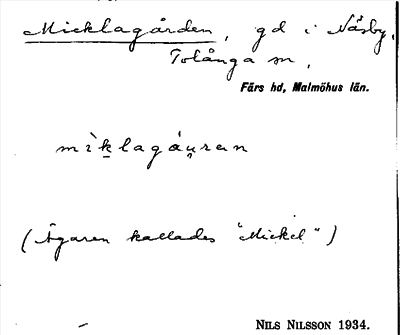 Micklagården, gd i Näsby,
Tolånga sn,
Färs hd, Malmöhus län.
mìklagáu̯ren
(Ägaren kallades "Mickel")
NILS NILSSON 1934.